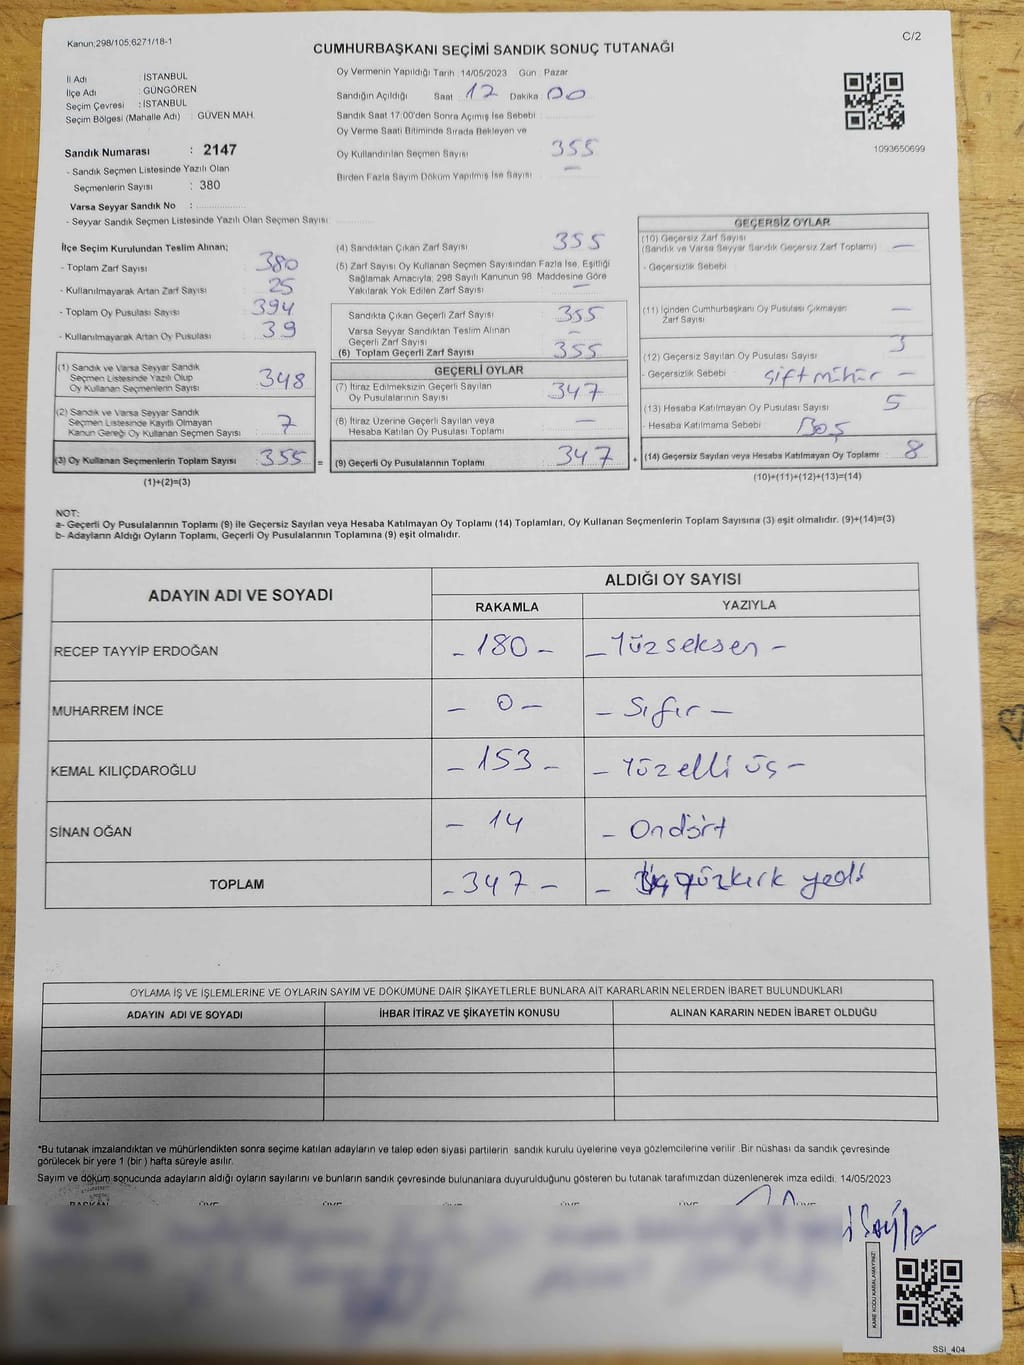 Kanun:298/105;6271/18-1
C/2
CUMHURBAŞKANI SEÇİMİ SANDIK SONUÇ TUTANAĞI
İl Adı : İSTANBUL
İlçe Adı : GÜNGÖREN
Seçim Çevresi : İSTANBUL
Seçim Bölgesi (Mahalle Adı) : GÜVEN MAH.
Sandık Numarası : 2147
- Sandık Seçmen Listesinde Yazılı Olan
Seçmenlerin Sayısı : 380
Varsa Seyyar Sandık No :
- Seyyar Sandık Seçmen Listesinde Yazılı Olan Seçmen Sayısı
Oy Vermenin Yapıldığı Tarih : 14/05/2023 Gün : Pazar
Sandığın Açıldığı Saat 17 Dakika 00
Sandık Saat 17:00'den Sonra Açımış İse Sebebi
Oy Verme Saati Bitiminde Sırada Bekleyen ve
Oy Kullandırılan Seçmen Sayısı 355
Birden Fazla Sayım Döküm Yapılmış İse Sayısı —
1093650699
İlçe Seçim Kurulundan Teslim Alınan;
- Toplam Zarf Sayısı 380
- Kullanılmayarak Artan Zarf Sayısı 25
- Toplam Oy Pusulası Sayısı 394
- Kullanılmayarak Artan Oy Pusulası 39
(1) Sandık ve Varsa Seyyar Sandık
Seçmen Listesinde Yazılı Olup
Oy Kullanan Seçmenlerin Sayısı 348
(2) Sandık ve Varsa Seyyar Sandık
Seçmen Listesinde Kayıtlı Olmayan
Kanun Gereği Oy Kullanan Seçmen Sayısı 7
(3) Oy Kullanan Seçmenlerin Toplam Sayısı 355 =
(1)+(2)=(3)
(4) Sandıktan Çıkan Zarf Sayısı 355
(5) Zarf Sayısı Oy Kullanan Seçmen Sayısından Fazla İse, Eşitliği
Sağlamak Amacıyla; 298 Sayılı Kanunun 98. Maddesine Göre
Yakılarak Yok Edilen Zarf Sayısı —
Sandıkta Çıkan Geçerli Zarf Sayısı 355
Varsa Seyyar Sandıktan Teslim Alınan
Geçerli Zarf Sayısı —
(6) Toplam Geçerli Zarf Sayısı 355
GEÇERLİ OYLAR
(7) İtiraz Edilmeksizin Geçerli Sayılan
Oy Pusulalarının Sayısı 347
(8) İtiraz Üzerine Geçerli Sayılan veya
Hesaba Katılan Oy Pusulası Toplamı —
(9) Geçerli Oy Pusulalarının Toplamı 347 +
GEÇERSİZ OYLAR
(10) Geçersiz Zarf Sayısı
(Sandık ve Varsa Seyyar Sandık Geçersiz Zarf Toplamı) —
- Geçersizlik Sebebi
(11) İçinden Cumhurbaşkanı Oy Pusulası Çıkmayan
Zarf Sayısı —
(12) Geçersiz Sayılan Oy Pusulası Sayısı 3
- Geçersizlik Sebebi çift mühür —
(13) Hesaba Katılmayan Oy Pusulası Sayısı 5
- Hesaba Katılmama Sebebi Boş
(14) Geçersiz Sayılan veya Hesaba Katılmayan Oy Toplamı 8
(10)+(11)+(12)+(13)=(14)
NOT:
a- Geçerli Oy Pusulalarının Toplamı (9) ile Geçersiz Sayılan veya Hesaba Katılmayan Oy Toplamı (14) Toplamları, Oy Kullanan Seçmenlerin Toplam Sayısına (3) eşit olmalıdır. (9)+(14)=(3)
b- Adayların Aldığı Oyların Toplamı, Geçerli Oy Pusulalarının Toplamına (9) eşit olmalıdır.
ADAYIN ADI VE SOYADI
ALDIĞI OY SAYISI
RAKAMLA YAZIYLA
RECEP TAYYİP ERDOĞAN - 180 - - Yüzseksen -
MUHARREM İNCE - 0 - - Sıfır -
KEMAL KILIÇDAROĞLU - 153 - - Yüzelli üç -
SİNAN OĞAN - 14 - Ondört
TOPLAM - 347 - - Üçyüzkırk yedi
OYLAMA İŞ VE İŞLEMLERİNE VE OYLARIN SAYIM VE DÖKÜMÜNE DAİR ŞİKAYETLERLE BUNLARA AİT KARARLARIN NELERDEN İBARET BULUNDUKLARI
ADAYIN ADI VE SOYADI İHBAR İTİRAZ VE ŞİKAYETİN KONUSU ALINAN KARARIN NEDEN İBARET OLDUĞU
*Bu tutanak imzalandıktan ve mühürlendikten sonra seçime katılan adayların ve talep eden siyasi partilerin sandık kurulu üyelerine veya gözlemcilerine verilir. Bir nüshası da sandık çevresinde
görülecek bir yere 1 (bir ) hafta süreyle asılır.
Sayım ve döküm sonucunda adayların aldığı oyların sayılarını ve bunların sandık çevresinde bulunanlara duyurulduğunu gösteren bu tutanak tarafımızdan düzenlenerek imza edildi. 14/05/2023
BAŞKAN ÜYE ÜYE ÜYE ÜYE ÜYE ÜYE
KARE KODU KARALAMAYINIZ!
SSI_404